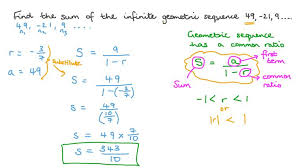 Find the sum of the infinite geometric sequence 49, -21, 9 ....
49, -21, 9 ....
a₁ a₂ a₃
r = -3/7
a = 49
Substitute
S = a / (1 - r)
S = 49 / (1 - (-3/7))
S = 49 / (10/7)
S = 49 × 7/10
S = 343/10
Geometric sequence
has a common ratio
S = a / (1 - r)
first
term
common
ratio
Sum
-1 < r < 1
or
|r| < 1